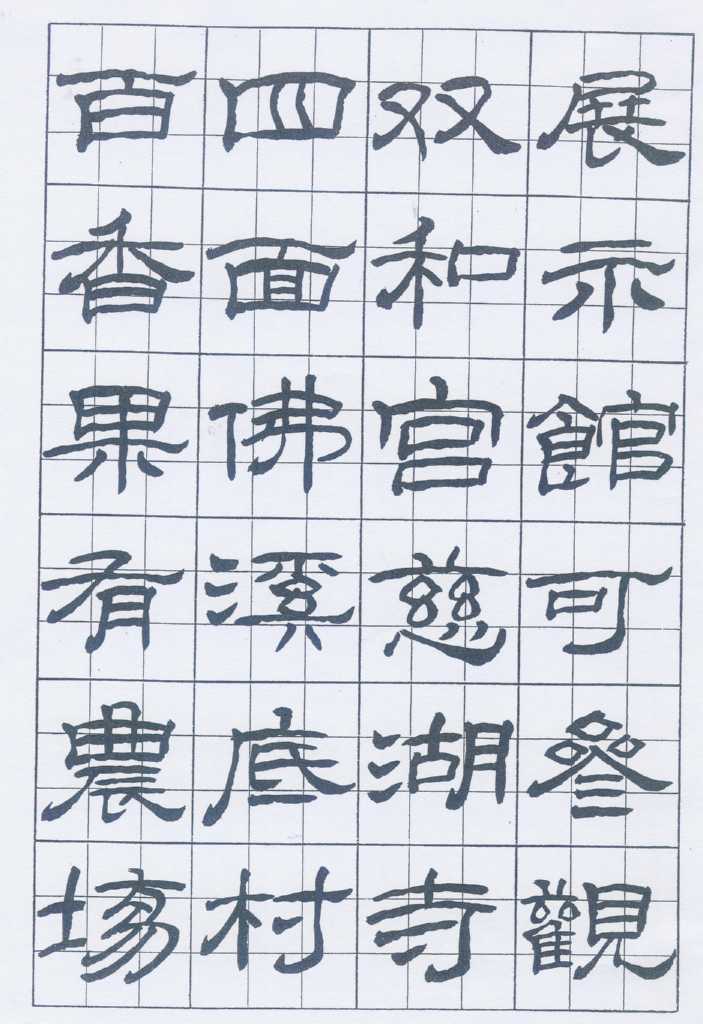 展示館可參觀
双和宫慈湖寺
四面佛溪底村
百香果有農場